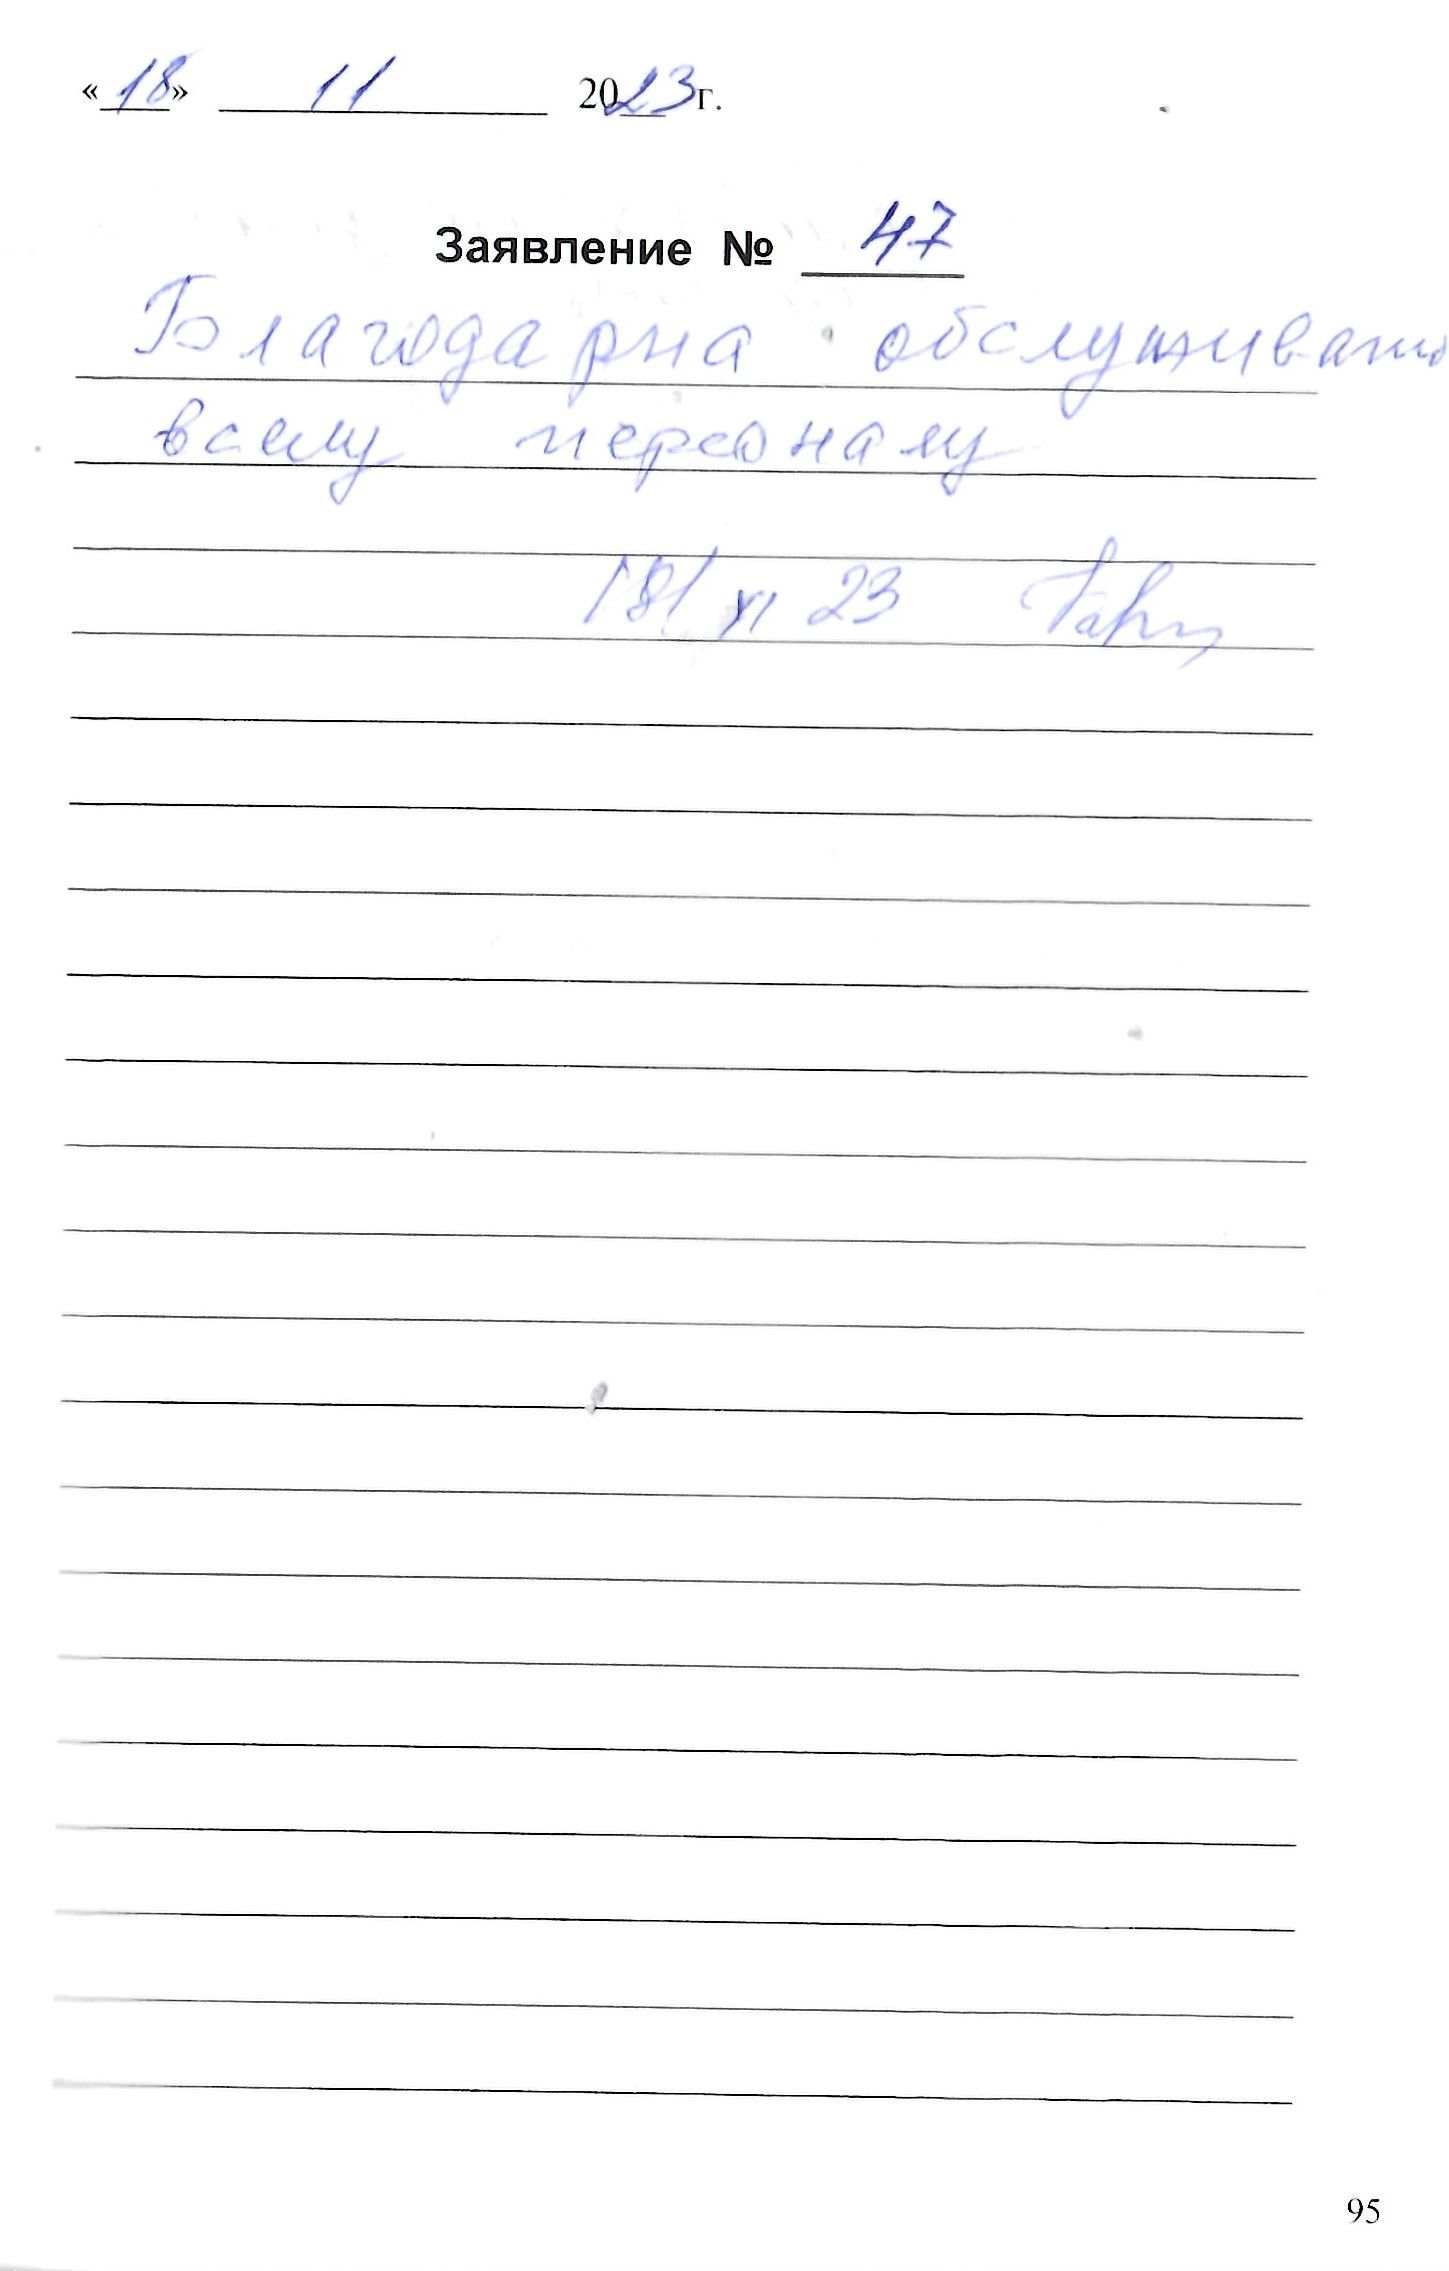 «18» 11 2023г.
Заявление № 47
Благодарна обслуживанию
всему персоналу
18/ XI 23
95